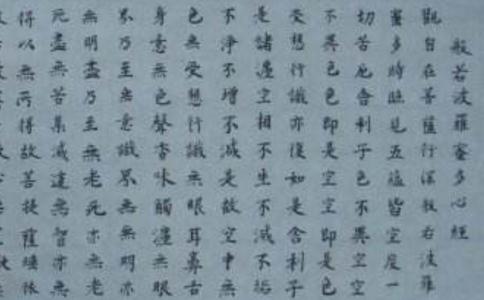 般若波羅蜜多心經
觀自在菩薩行深般若波羅
蜜多時照見五蘊皆空度一
切苦厄舍利子色不異空空
不異色色即是空空即是色
受想行識亦復如是舍利子
是諸灋空相不生不滅不垢
不淨不增不減是故空中無
色無受想行識無眼耳鼻舌
身意無色聲香味觸灋無眼
界乃至無意識界無無明亦
無無明盡乃至無老死亦無老
死盡無苦集滅道無智亦無
得以無所得故菩提薩埵依